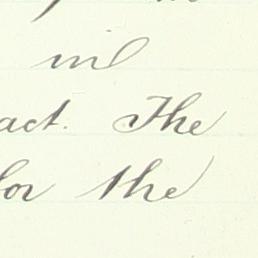 in
act. The
for the